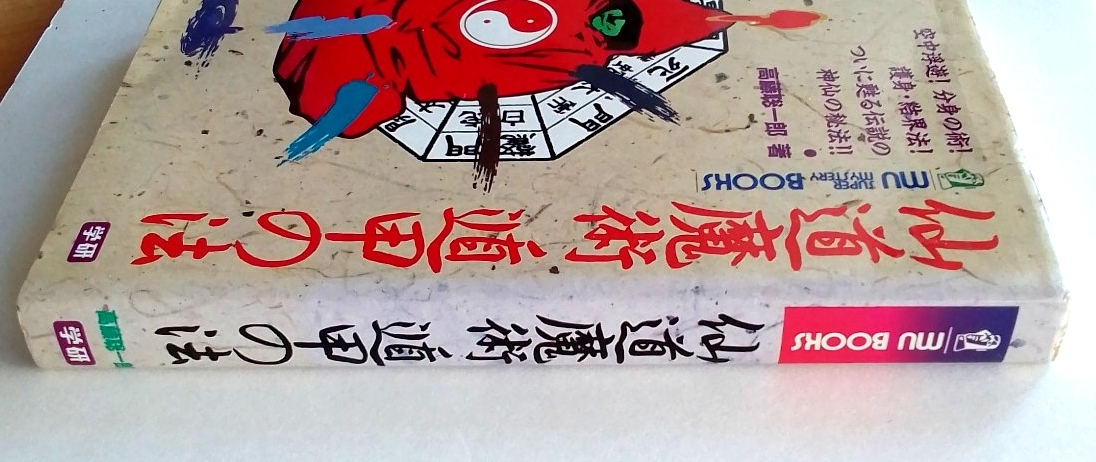 空中浮遊!分身の術!
護身・結界法!
ついに甦る伝説の
神仙の秘法!!
高藤聡一郎 著
MU SUPER MYSTERY BOOKS
仙道魔術 遁甲の法
学研
白虎
驚門
死
門
MU BOOKS
仙道魔術 遁甲の法
高藤聡一郎
学研